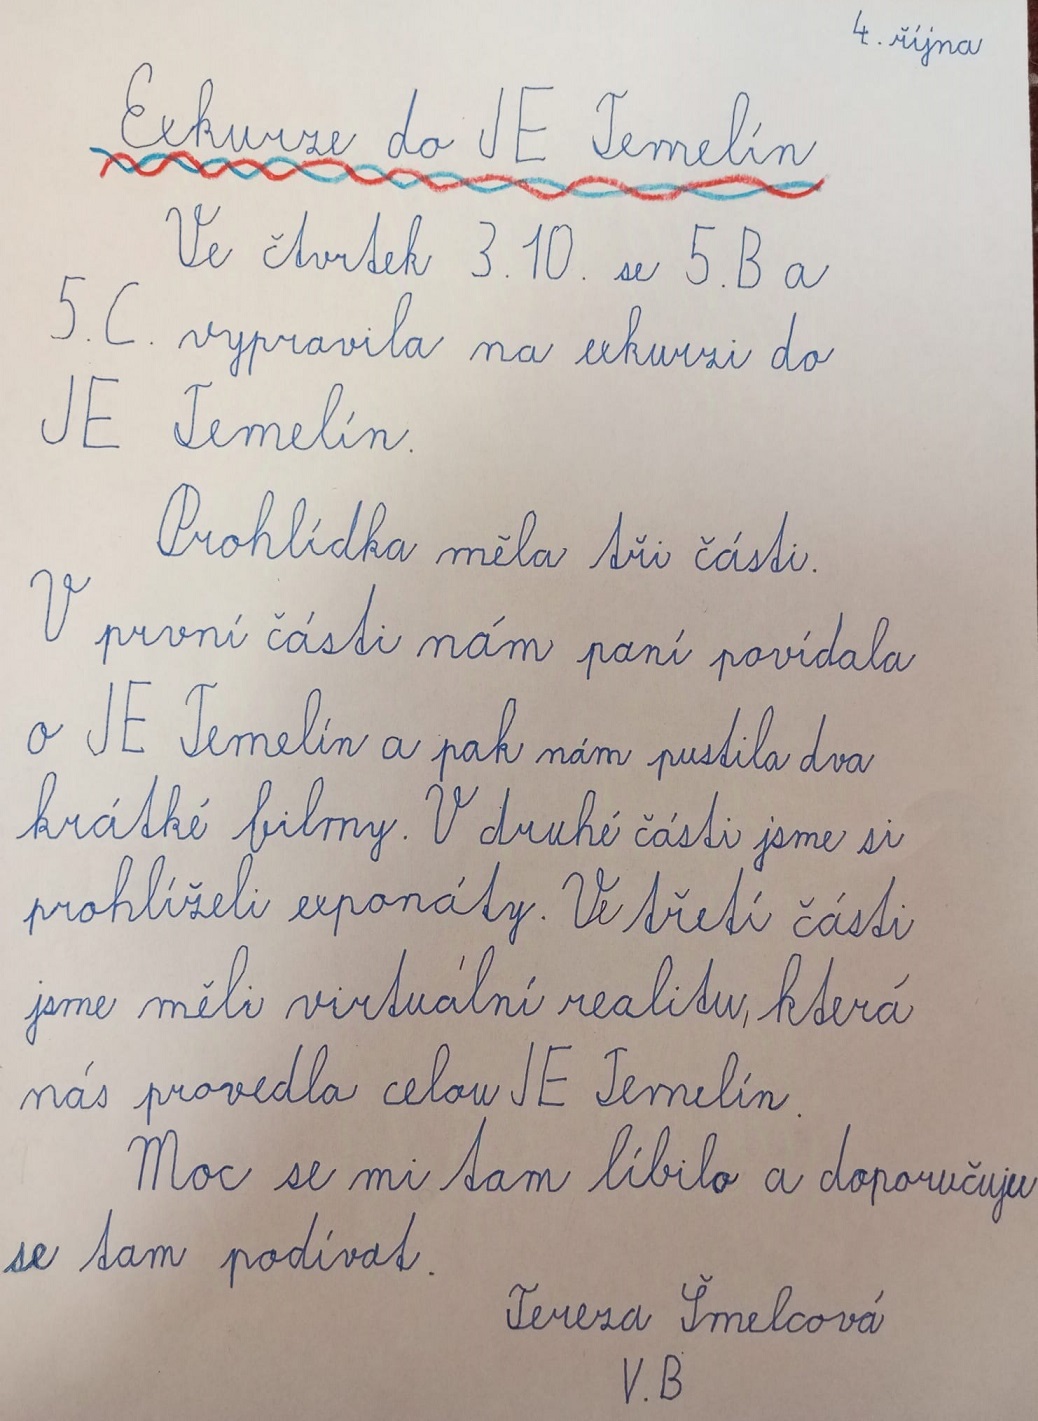 4. října
Exkurze do JE Temelín
Ve čtvrtek 3.10. se 5.B a
5.C. vypravila na exkurzi do
JE Temelín.
Prohlídka měla tři části.
V první části nám paní povídala
o JE Temelín a pak nám pustila dva
krátké filmy. V druhé části jsme si
prohlíželi exponáty. Ve třetí části
jsme měli virtuální realitu, která
nás provedla celou JE Temelín.
Moc se mi tam líbilo a doporučuju
se tam podívat.
Tereza Šmelcová
V.B